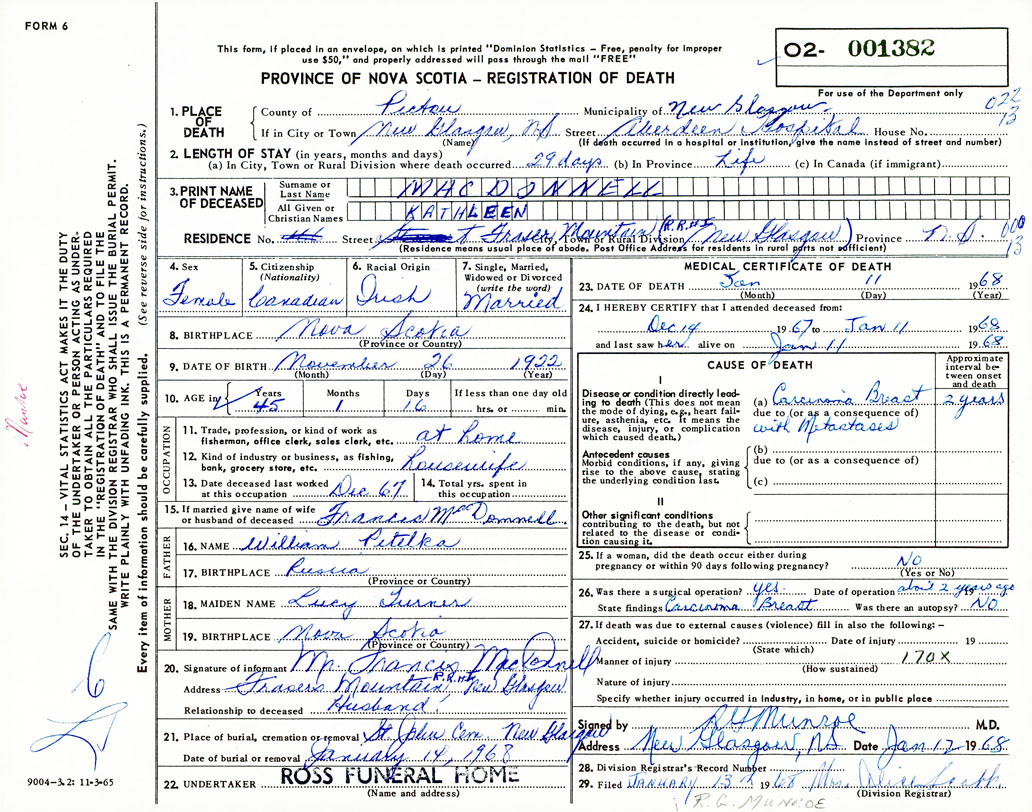 FORM 6
This form, if placed in an envelope, on which is printed "Dominion Statistics – Free, penalty for improper
use $50," and properly addressed will pass through the mail "FREE"
PROVINCE OF NOVA SCOTIA – REGISTRATION OF DEATH
02- 001382
For use of the Department only
022
13
1. PLACE OF DEATH
County of Pictou Municipality of New Glasgow
If in City or Town New Glasgow, N.S Street Aberdeen Hospital House No.
(Name) (If death occurred in a hospital or institution, give the name instead of street and number)
2. LENGTH OF STAY (in years, months and days)
(a) In City, Town or Rural Division where death occurred 29 days (b) In Province Life (c) In Canada (if immigrant)
3. PRINT NAME OF DECEASED
Surname or Last Name MACDONNELL
All Given or Christian Names KATHLEEN
RESIDENCE No. Street Fraser Mountain (R.R.#1 City, Town or Rural Division New Glasgow) Province N.S.
000
13
(Residence means usual place of abode. Post Office Address for residents in rural parts not sufficient)
4. Sex Female
5. Citizenship (Nationality) Canadian
6. Racial Origin Irish
7. Single, Married, Widowed or Divorced (write the word) Married
8. BIRTHPLACE Nova Scotia
(Province or Country)
9. DATE OF BIRTH November 26 1922
(Month) (Day) (Year)
10. AGE in Years 45 Months 1 Days 16 If less than one day old hrs. or min.
OCCUPATION
11. Trade, profession, or kind of work as fisherman, office clerk, sales clerk, etc. at home
12. Kind of industry or business, as fishing, bank, grocery store, etc. housewife
13. Date deceased last worked at this occupation Dec 67
14. Total yrs. spent in this occupation
15. If married give name of wife or husband of deceased Francis McDonnell
FATHER
16. NAME William Pitelka
17. BIRTHPLACE Russia
(Province or Country)
MOTHER
18. MAIDEN NAME Lucy Turner
19. BIRTHPLACE Nova Scotia
(Province or Country)
20. Signature of informant Mr. Francis MacDonnell
Address Frasers Mountain, R.R.#1 New Glasgow
Relationship to deceased Husband
21. Place of burial, cremation or removal St John Cem. New Glasgow
Date of burial or removal January 14, 1968
22. UNDERTAKER ROSS FUNERAL HOME
(Name and address)
MEDICAL CERTIFICATE OF DEATH
23. DATE OF DEATH Jan 11 1968
(Month) (Day) (Year)
24. I HEREBY CERTIFY that I attended deceased from:
Dec 14 1967 to Jan 11 1968
and last saw her alive on Jan 11 1968
CAUSE OF DEATH
Approximate interval between onset and death
I
Disease or condition directly leading to death (This does not mean the mode of dying, e.g., heart failure, asthenia, etc. It means the disease, injury, or complication which caused death.)
(a) Carcinoma Breast 2 years
due to (or as a consequence of)
with Metastases
Antecedent causes
Morbid conditions, if any, giving rise to the above cause, stating the underlying condition last.
(b)
due to (or as a consequence of)
(c)
II
Other significant conditions
contributing to the death, but not related to the disease or condition causing it.
25. If a woman, did the death occur either during pregnancy or within 90 days following pregnancy? NO
(Yes or No)
26. Was there a surgical operation? yes. Date of operation about 2 years ago 19
State findings Carcinoma Breast Was there an autopsy? NO
27. If death was due to external causes (violence) fill in also the following: –
Accident, suicide or homicide? Date of injury 19
(State which)
Manner of injury 170X
(How sustained)
Nature of injury
Specify whether injury occurred in industry, in home, or in public place
Signed by R G Munroe M.D.
Address New Glasgow, NS Date Jan 12 1968
28. Division Registrar's Record Number
29. Filed JANUARY 13th 1968 Mrs. Alice
(Division Registrar)
R. G. MUNROE
SEC. 14 – VITAL STATISTICS ACT MAKES IT THE DUTY
OF THE UNDERTAKER OR PERSON ACTING AS UNDER-
TAKER TO OBTAIN ALL THE PARTICULARS REQUIRED
IN THE "REGISTRATION OF DEATH" AND TO FILE THE
SAME WITH THE DIVISION REGISTRAR WHO SHALL ISSUE THE BURIAL PERMIT.
WRITE PLAINLY WITH UNFADING INK. THIS IS A PERMANENT RECORD.
Every item of information should be carefully supplied. (See reverse side for instructions.)
Munroe
9004-3.2: 11-3-65